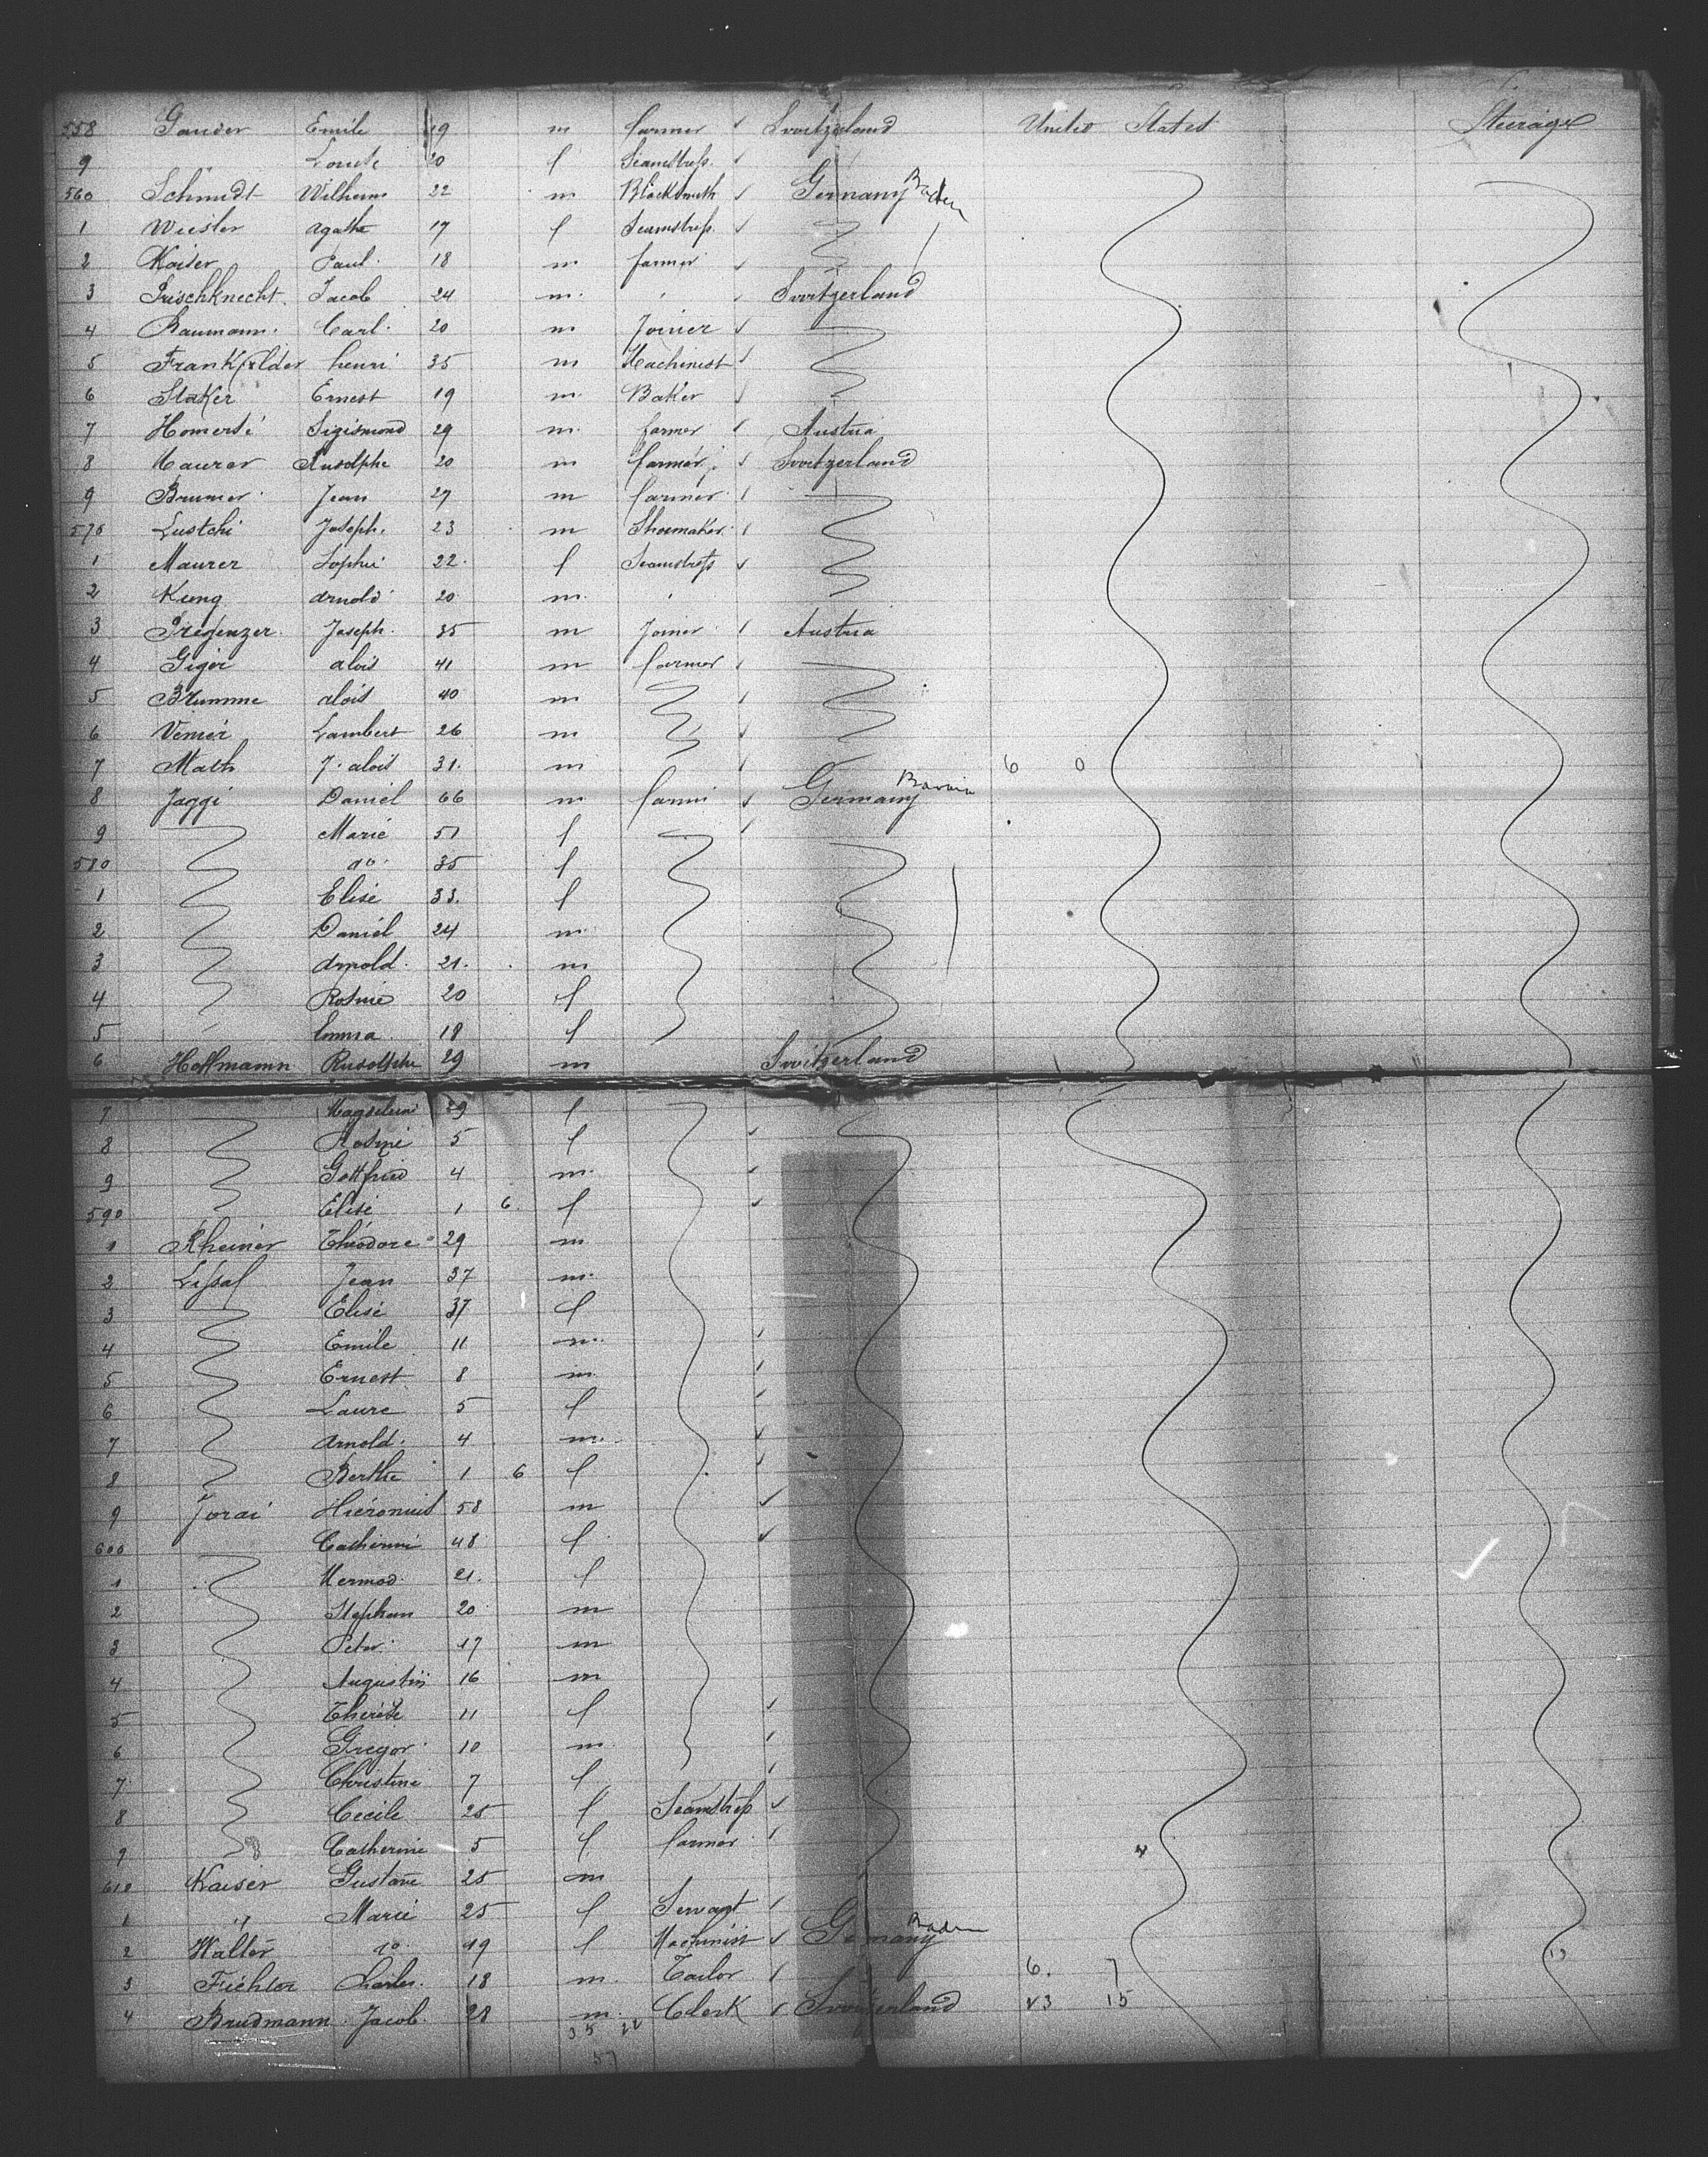 558 Gander Emile 19 m farmer Switzerland United States Steirage
9 Louise 20 f Seamstress
560 Schmidt Wilhem 22 m Blacksmith Germany Baden
1 Wiesler agathe 17 f Seamstress
2 Kaiser Paul 18 m farmer
3 Frischknecht Jacob 24 m " Switzerland
4 Baumann Carl 20 m Joiner
5 Frankfelder henri 35 m Machinist
6 Staker Ernest 19 m Baker
7 Sigismond 29 m farmer Austria
8 Maurer Rudolphe 20 m farmer Switzerland
9 Brunner Jean 27 m farmer
570 Lustchi Joseph 23 m Shoemaker
1 Maurer Sophie 22 f Seamstress
2 Kung arnold 20 m "
3 Fregenzer Joseph 35 m Joiner Austria
4 Giger alois 41 m farmer
5 Brumme alois 40 m
6 Venier Lambert 26 m
7 Math J. alois 31 m 6 0
8 Jaggi Daniel 66 m farmer Germany Bavaria
9 Marie 51 f
580 do 35 f
1 Elise 33 f
2 Daniel 24 m
3 arnold 21 m
4 Rosine 20 f
5 Emma 18 f
6 Hoffmann Rudolphe 29 m Switzerland
7 Magdelene 29 f
8 Rosine 5 f
9 Gottfried 4 m
590 Elise 1 6 f
1 Rheiner Théodore 29 m
2 Jean 37 m
3 Elise 37 f
4 Emile 11 m
5 Ernest 8 m
6 Laure 5 f
7 Arnold 4 m
8 Berthe 1 6 f
9 Jorai Hiéronimus 58 m
600 Catherine 48 f
1 21 f
2 Stephan 20 m
3 Peter 17 m
4 Augustin 16 m
5 Thérèse 11 f
6 Gregor 10 m
7 Christine 7 f
8 Cecile 25 f Seamstress
9 Catherine 5 f farmer
610 Kaiser Gustave 25 m
1 " Marie 25 f Servant
2 Walter do 19 f Machinist Germany Baden
3 Fiechter Charles 18 m Tailor 6 7
4 Brudmann Jacob 28 m Clerk Switzerland 23 15
35 22
57